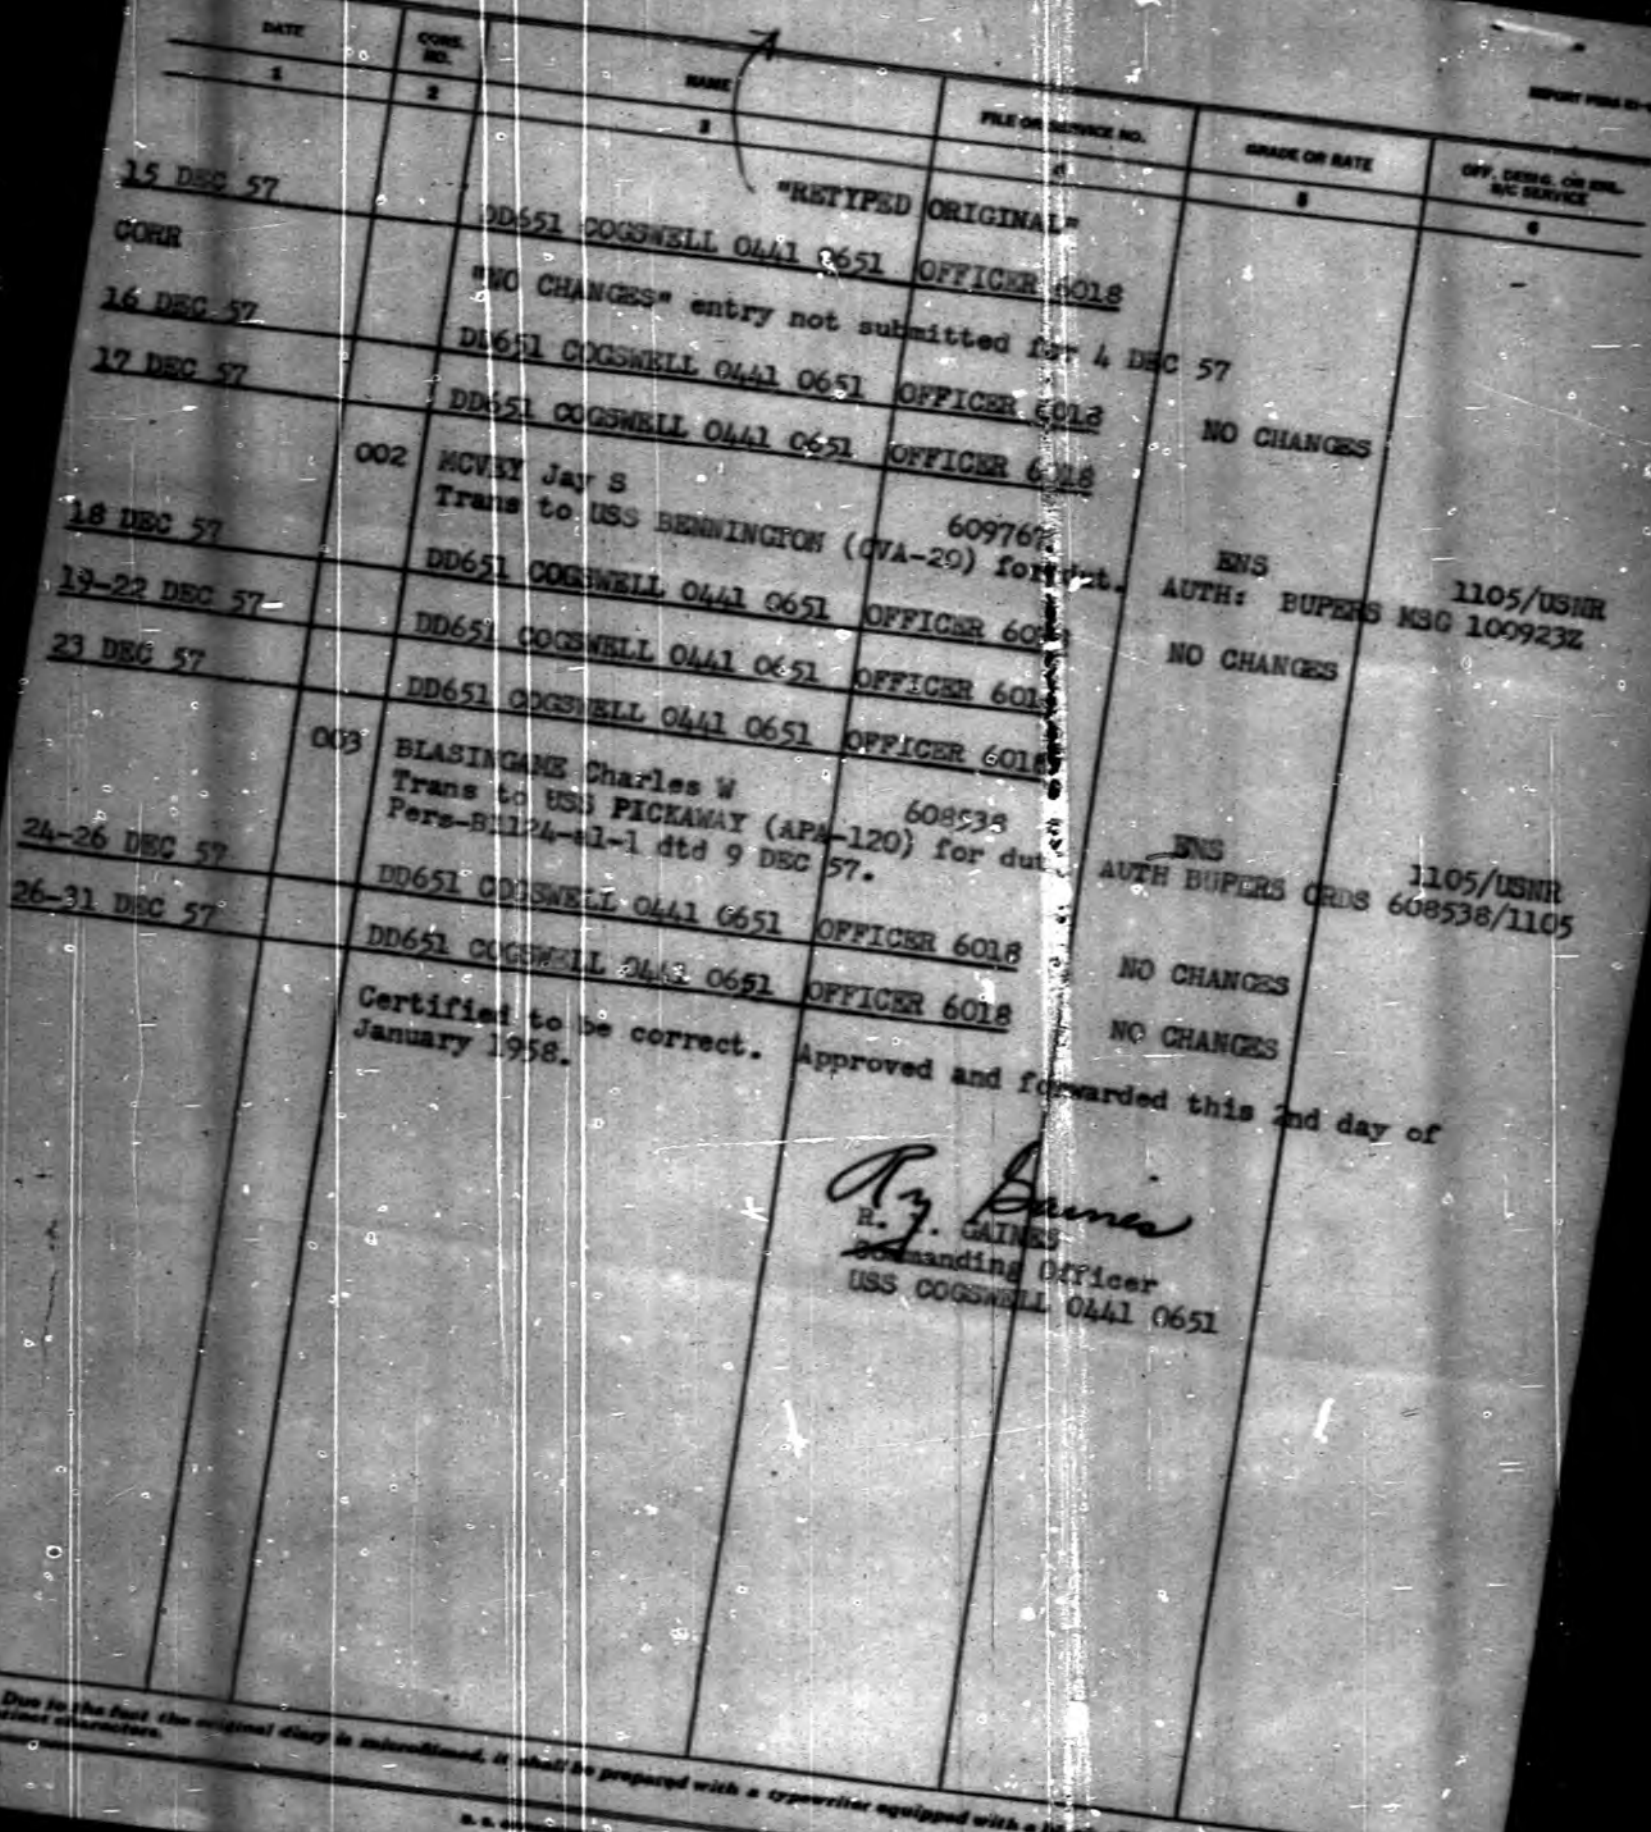 DATE CONS. NO. NAME FILE OR SERVICE NO. GRADE OR RATE OFF. DESIG. OR ENL. B/C SERVICE
1 2 3 4 5 6
"RETYPED ORIGINAL"
15 DEC 57 DD651 COGSWELL 0441 0651 OFFICER 6018
CORR "NO CHANGES" entry not submitted for 4 DEC 57
16 DEC 57 DD651 COGSWELL 0441 0651 OFFICER 6018 NO CHANGES
17 DEC 57 DD651 COGSWELL 0441 0651 OFFICER 6018
002 MCVEY Jay S 609767 ENS 1105/USNR
Trans to USS BENNINGTON (CVA-20) for dut. AUTH: BUPERS MSG 100923Z
18 DEC 57 DD651 COGSWELL 0441 0651 OFFICER 6018 NO CHANGES
19-22 DEC 57 DD651 COGSWELL 0441 0651 OFFICER 6018
23 DEC 57 DD651 COGSWELL 0441 0651 OFFICER 6018
003 BLASINGAME Charles W 608538 ENS 1105/USNR
Trans to USS PICKAWAY (APA-120) for dut AUTH BUPERS ORDS 608538/1105
Pers-B1124-al-1 dtd 9 DEC 57.
24-26 DEC 57 DD651 COGSWELL 0441 0651 OFFICER 6018 NO CHANGES
26-31 DEC 57 DD651 COGSWELL 0441 0651 OFFICER 6018 NO CHANGES
Certified to be correct. Approved and forwarded this 2nd day of
January 1958.
R. GAINES
Commanding Officer
USS COGSWELL 0441 0651
Due to the fact the original diary is microfilmed, it shall be prepared with a typewriter equipped with a
characters.